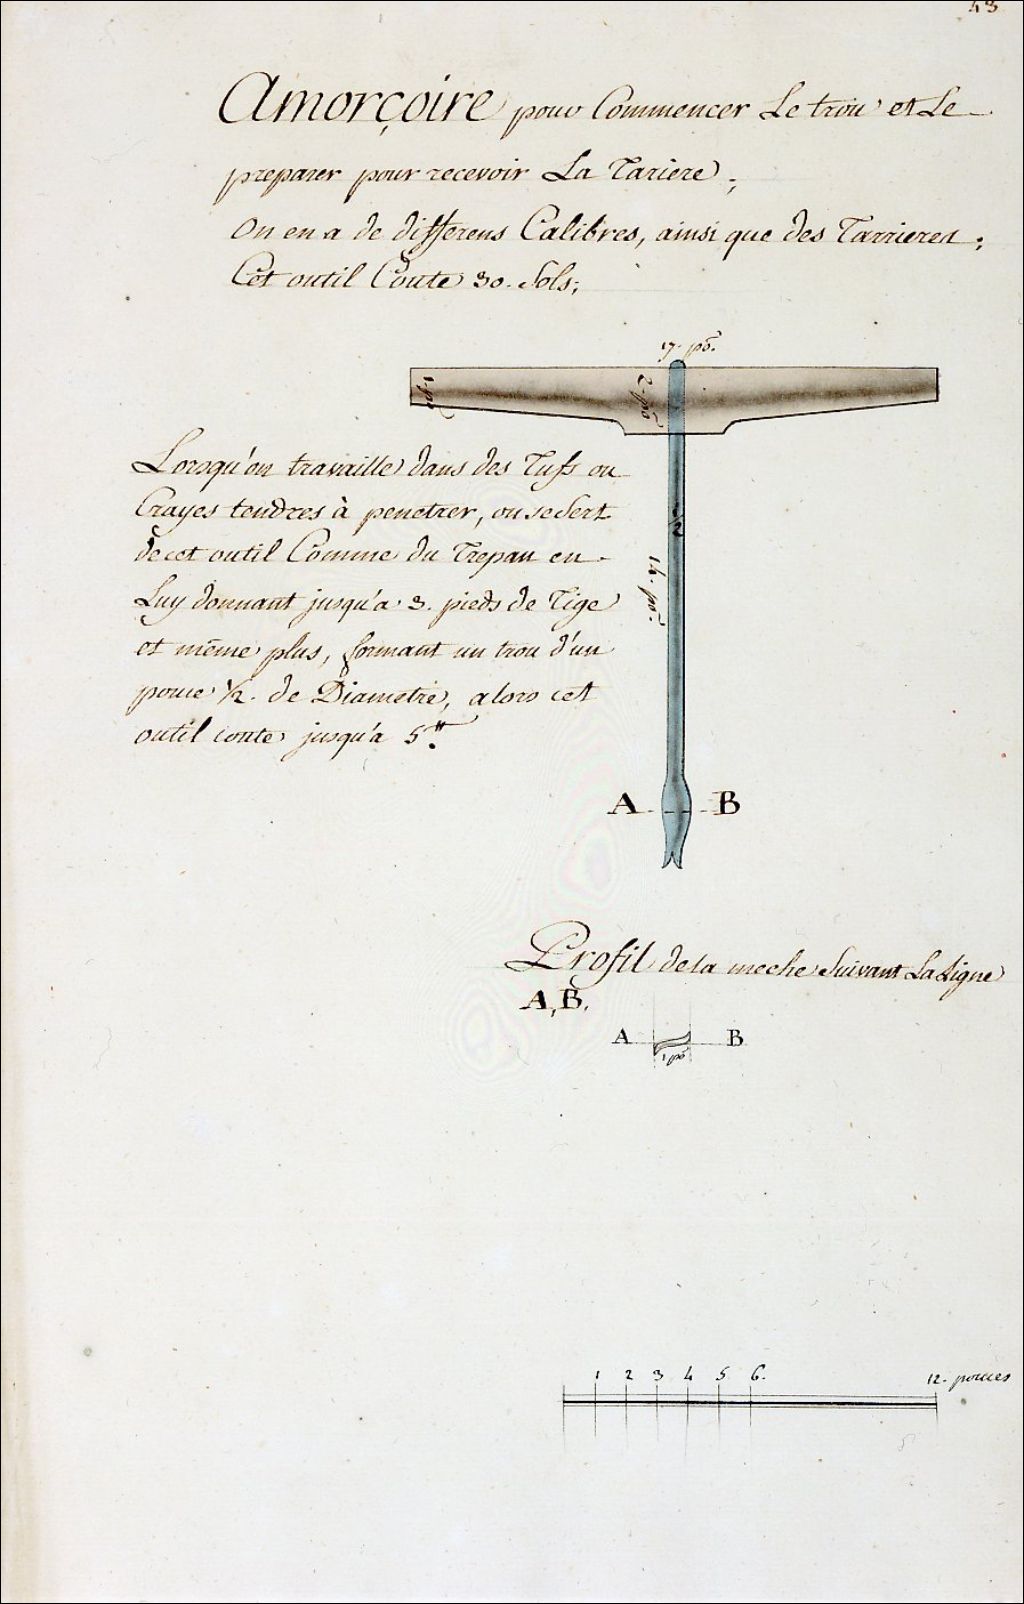 43
Amorçoire pour Commencer Le trou et Le
preparer pour recevoir La Tariere;
On en a de differens Calibres, ainsi que des Tarrieres;
Cet outil Coute 30. Sols;
17. po.
1. po
2. po
1/2
14. po.
Lorsqu'on travaille dans des Tufs ou
Crayes tendres à penetrer, on se Sert
de cet outil Comme du Trepan en
Luy donnant jusqu'a 3. pieds de Tige
et même plus, formant un trou d'un
pouce 1/2. de Diametre, alors cet
outil coute jusqu'a 5.tt
A B
Profil de la meche Suivant La Ligne
A, B.
A B
1 po
1 2 3 4 5 6. 12. pouces